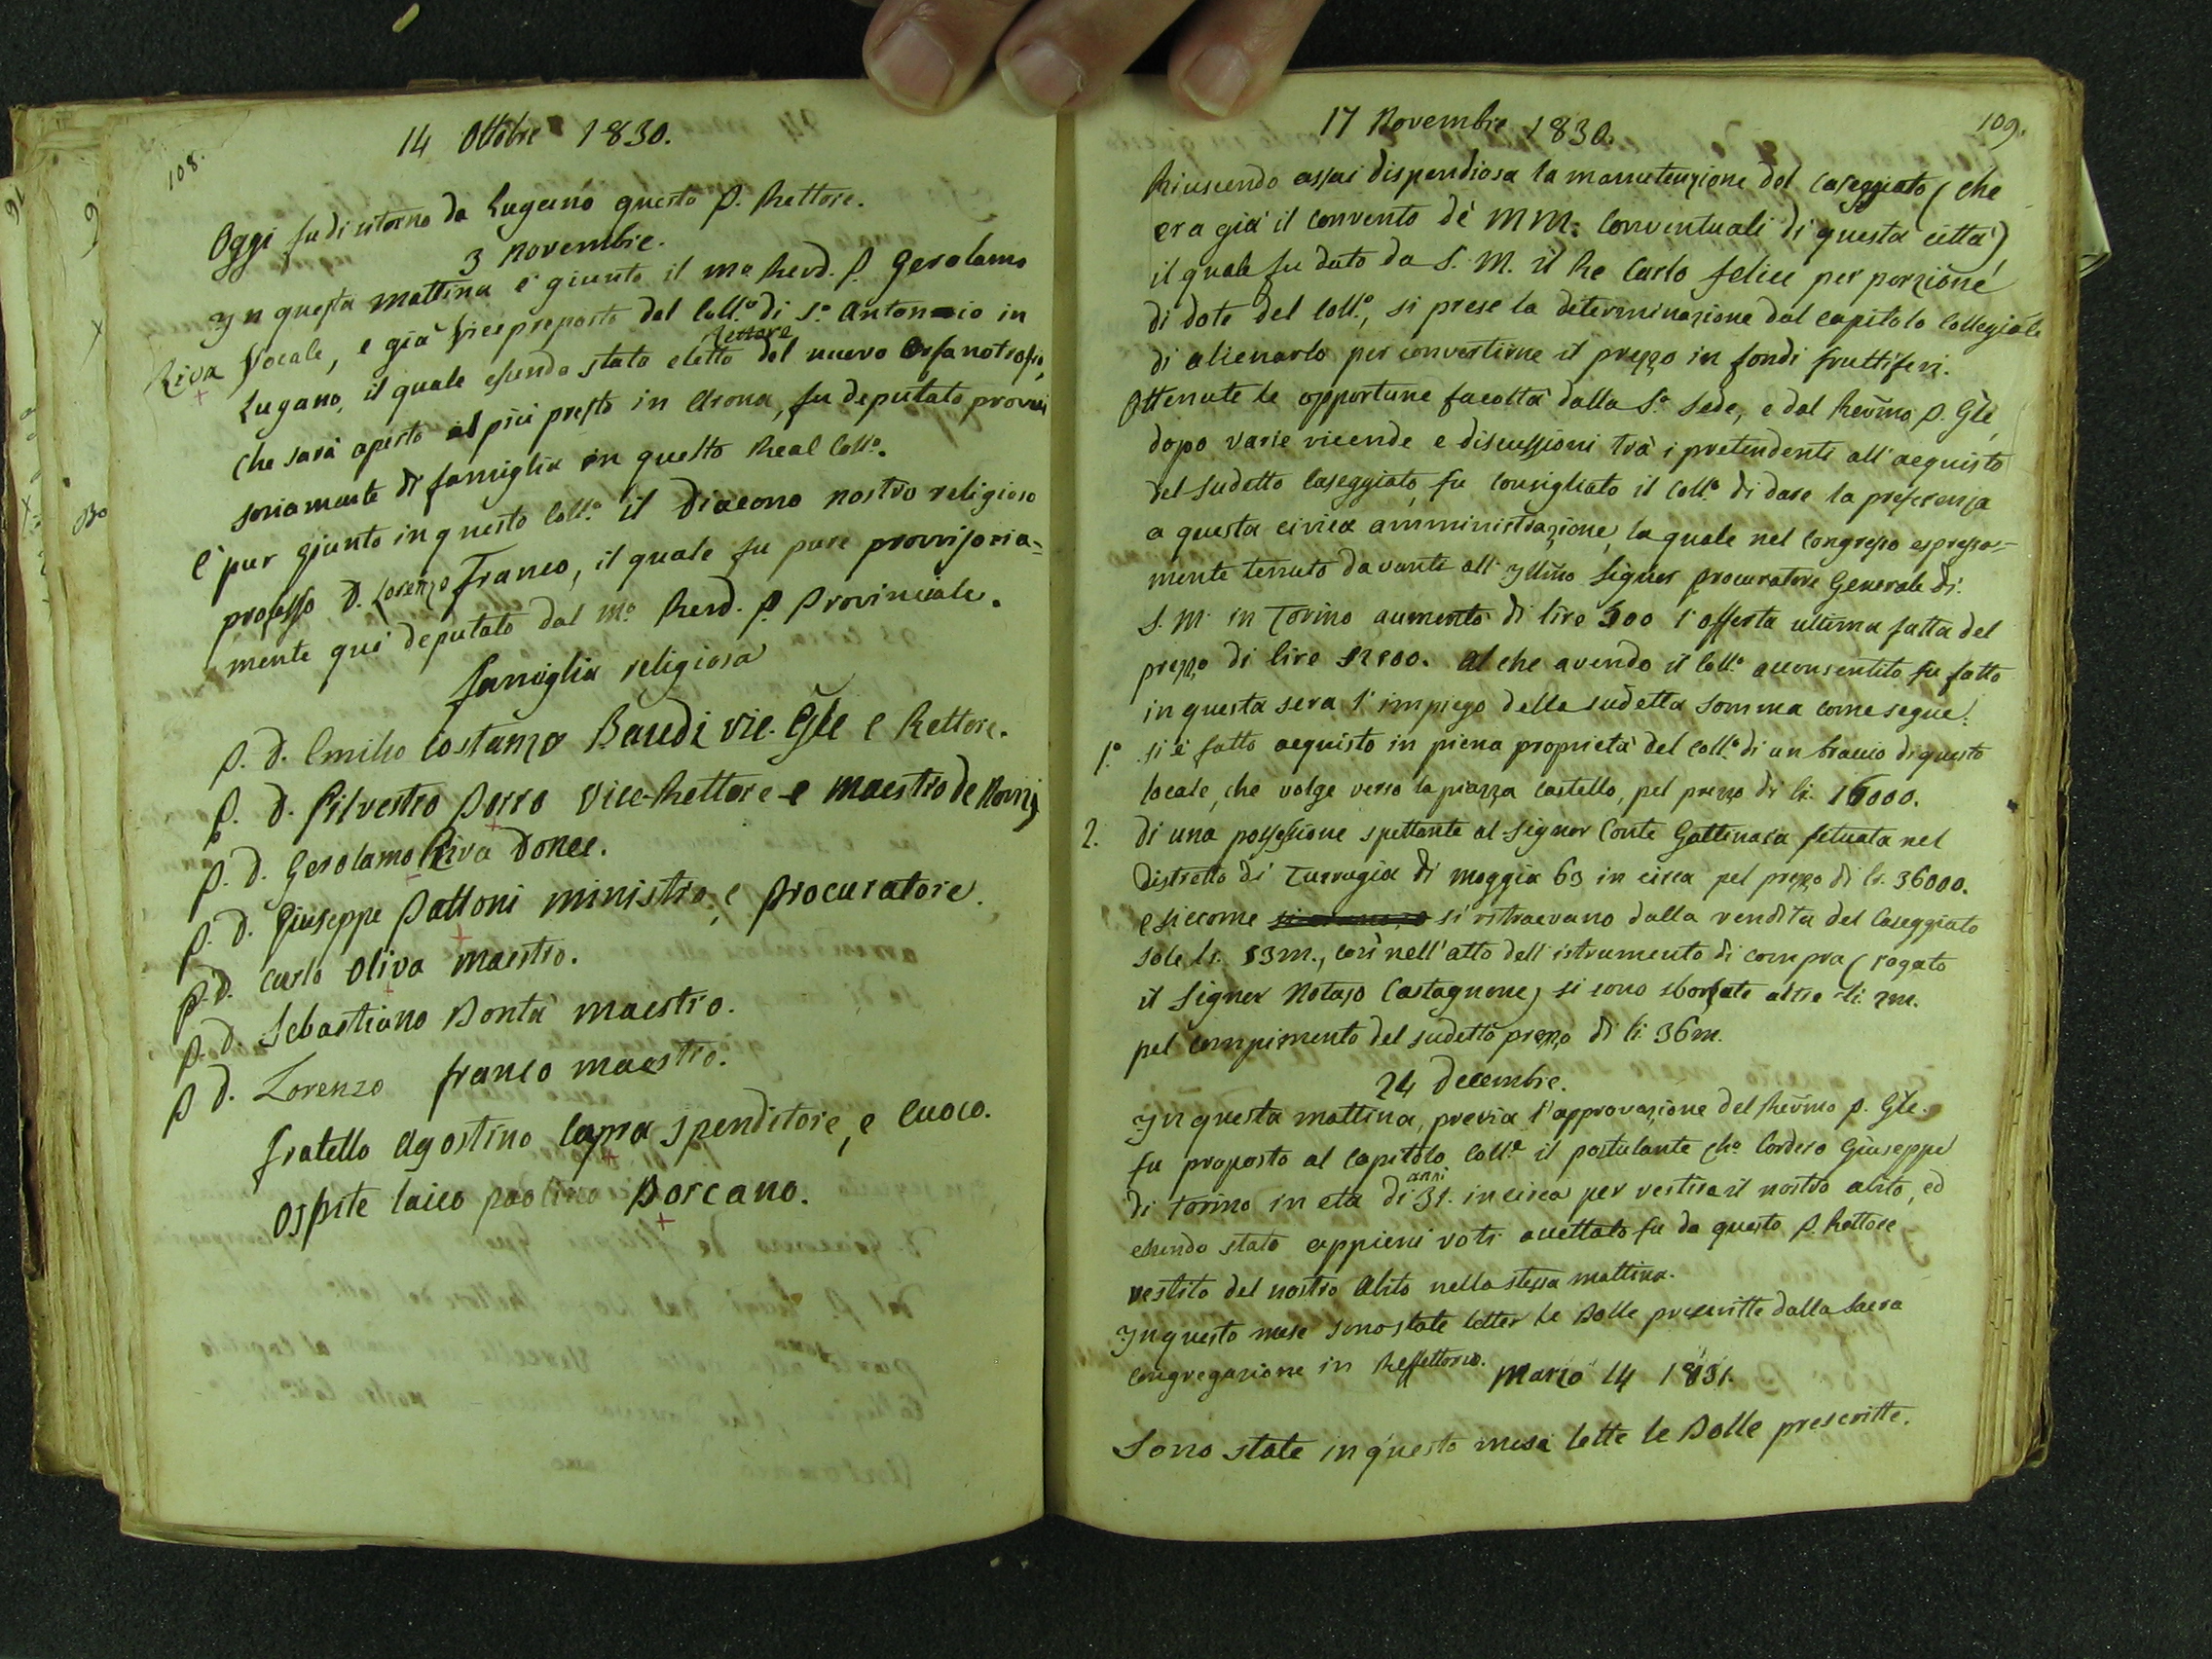 108.
14 Ottobre 1830.
Oggi fu di ritorno da Lugano questo P. Rettore.
3 Novembre.
In questa mattina è giunto il mo Revd. P. Gerolamo
Riva Vocale, e già Vicepreposto del Coll.o di S.o Antonio in
Lugano, il quale essendo stato eletto Rettore del nuovo Orfanotrofio,
che sarà aperto al più presto in Arona, fu deputato provvi
soriamente di famiglia in questo Real Coll.o.
È pur giunto in questo Coll.o il Diacono nostro religioso
professo D. Lorenzo Franco, il quale fu pure provvisoria=
mente quì deputato dal M.o Revd. P. Provinciale.
famiglia religiosa
P. D. Emilio Costanzo Baudi Vic. Gle e Rettore.
P. D. Silvestro Porro Vice-Rettore e Maestro de Novizj
P. D. Gerolamo Riva Donec.
P. D. Giuseppe Pattoni ministro, e procuratore.
P. D. Carlo Oliva maestro.
P. D. Sebastiano Bontà maestro.
P D. Lorenzo franco maestro.
fratello Agostino Cappa spenditore, e Cuoco.
Ospite laico paolino Borcano.
109.
17 Novembre 1830.
Riuscendo assai dispendiosa la manutenzione del Caseggiato (che
era già il convento dè MM: Conventuali di questa città)
il quale fu dato da S. M. il Re Carlo felice per porzione
di dote del Coll.o, si prese la determinazione dal capitolo Collegiale
di alienarlo per convertirne il prezzo in fondi fruttiferi.
Ottenute le opportune facoltà dalla S.a Sede, e dal Revmo P. Gle,
dopo varie vicende e discussioni trà i pretendenti all'acquisto
del sudetto Caseggiato, fu consigliato il Coll.o di dare la preferenza
a questa civica amministrazione, la quale nel Congresso espressa=
mente tenuto davanti all' Illmo Signor procuratore Generale di
S. M. in Torino aumentò di lire 500 l'offerta ultima fatta del
prezzo di lire Al che avendo il Coll.o acconsentito fu fatto
in questa sera l'impiego della sudetta somma come segue:
1.o si è fatto acquisto in piena proprietà del Coll.o di un braccio di questo
locale, che volge verso la piazza Castello, pel prezzo di li. 16000.
2. di una possessione spettante al Signor Conte Gattinara situata nel
distretto di Turrugia di moggia 63 in circa pel prezzo di li. 36000.
e siccome si ritraevano dalla vendita del Caseggiato
sole li. così nell'atto dell'istrumento di compra (rogato
il Signor Notajo Castagnone) si sono sborsate altre li.
pel compimento del sudetto prezzo di li. 36m.
24 decembre.
In questa mattina, previa l'approvazione del Revmo P. Gle.
fu proposto al Capitolo Coll.e il postulante Ch.o Cordero Giuseppe
di Torino in età di anni 31. incirca per vestire il nostro abito, ed
essendo stato a pieni voti accettato fu da questo P. Rettore
vestito del nostro Abito nella stessa mattina.
In questo mese sono state lette le Bolle prescritte dalla Sacra
Congregazione in Reffettorio.
Marzo 14 1831.
Sono state in questo mese lette le Bolle prescritte.